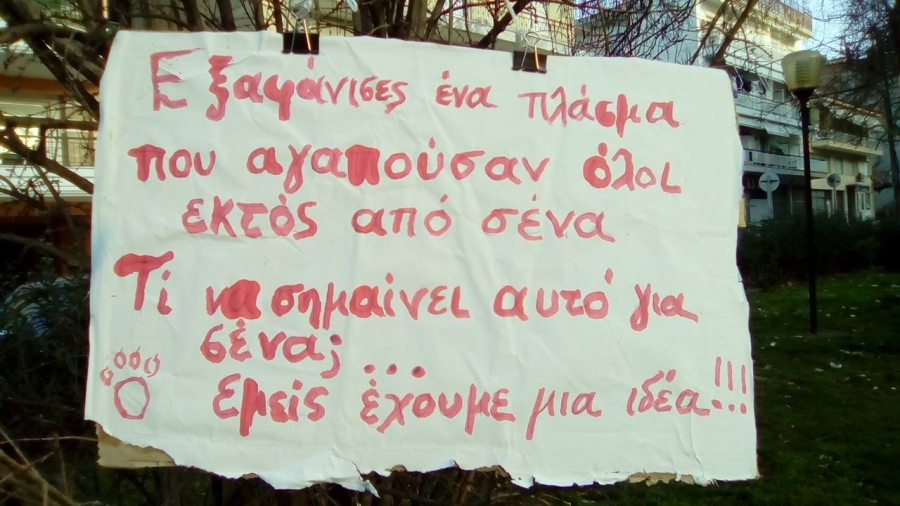 Εξαφάνισες ένα πλάσμα
που αγαπούσαν όλοι
εκτός από σένα
Τί να σημαίνει αυτό για
σένα; ...
Εμείς έχουμε μια ιδέα..!!!